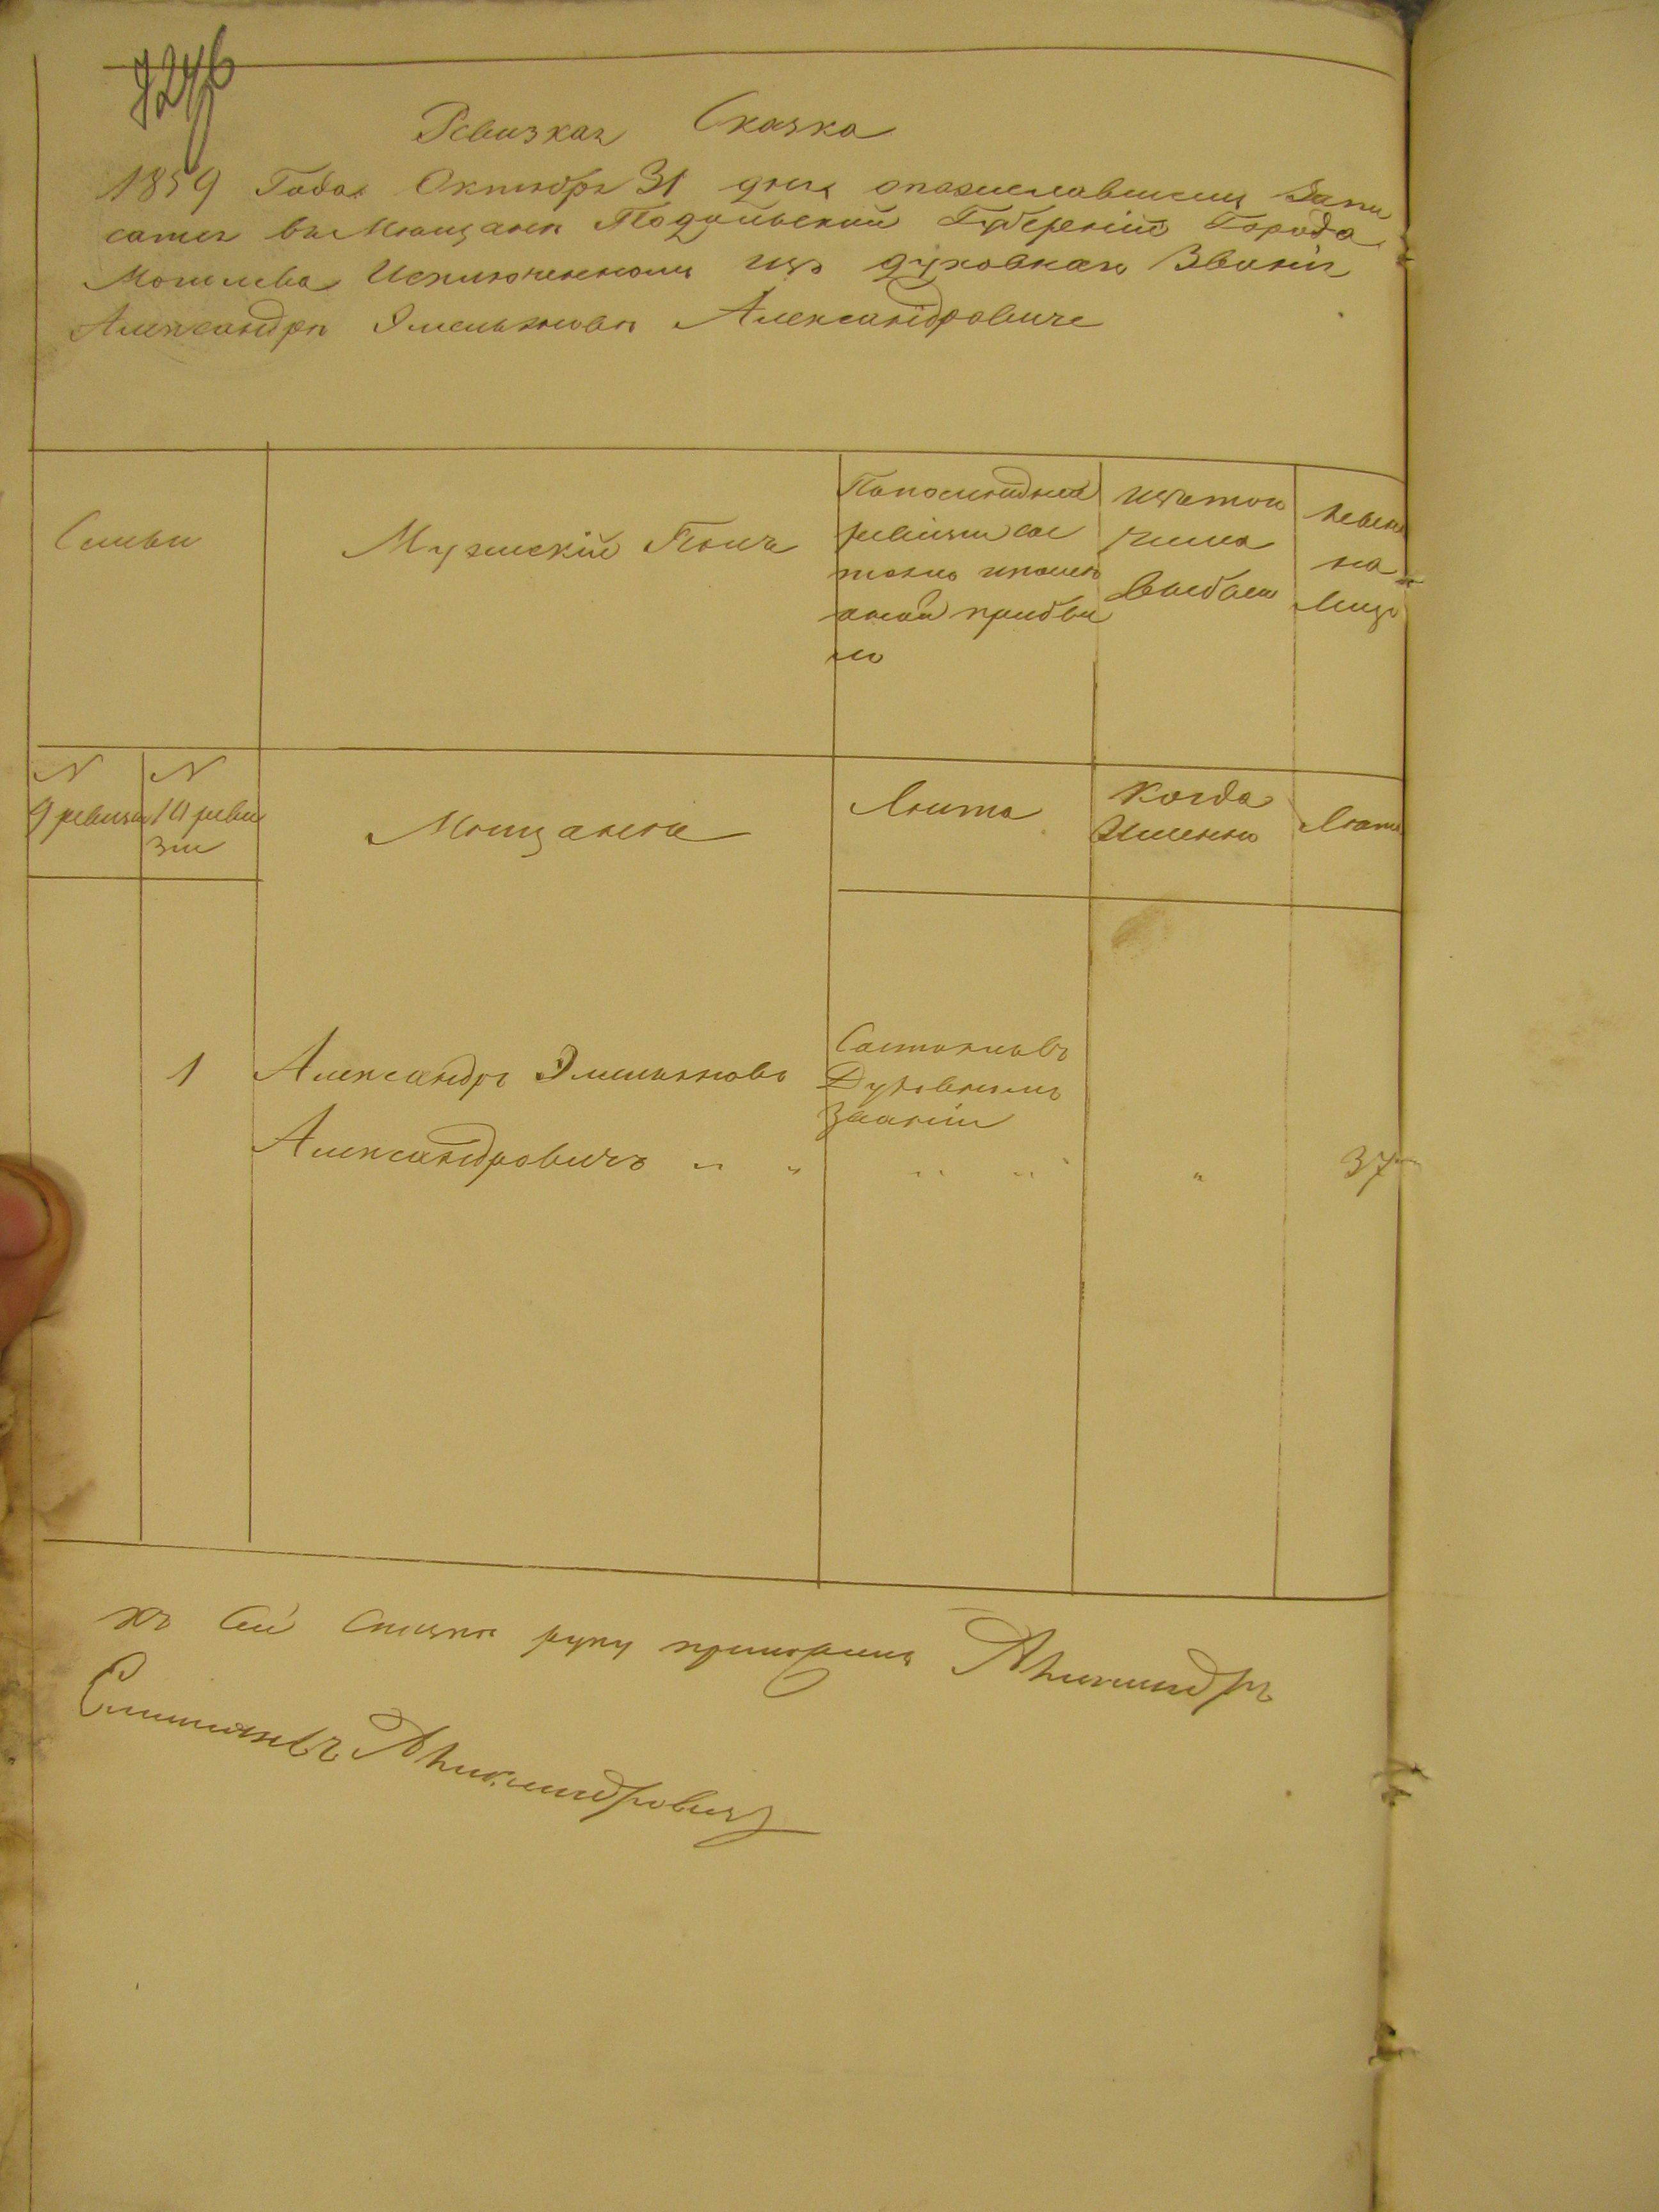 7246
Ревизкая Сказка
1859 Года Октября 31 дня опожелавшемъ Запи
сатся въ Мѣщане Подольской Губерніи Города
Могилева Исключенномъ изъ духовнаго Званія
Александрѣ Эмельяновѣ Александровиче
Семьи
Мужескій Полъ
Попослѣдней
ревизіи сос
тояло ипослѣ
оной прибы
ло
изътого
числа
выбыло
Нынѣ
на
лицо
N
9 ревизіи
N
10 реви
зіи
Мѣщанѣ
Лѣта
Когда
Именно
Лѣта
1
Александръ Эмельяновъ
Александровичъ " "
Состоялъвъ
Духовномъ
Званіи
" " " 37
къ Сей Сказкѣ руку приложилъ Александръ
Емельяновъ Александровичъ